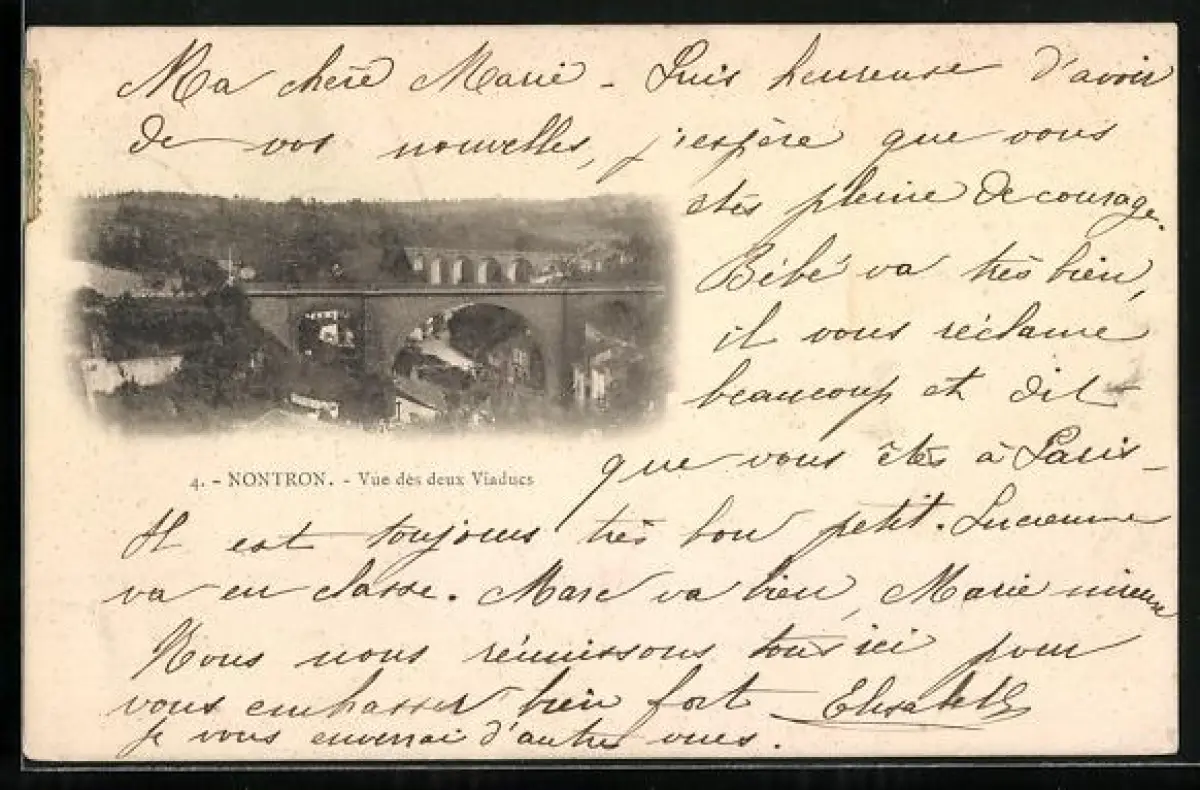 Ma chère Marie - Suis heureuse d'avoir
de vos nouvelles, j'espère que vous
etes pleine de courage.
Bébé va très bien,
il vous réclame
beaucoup et dit
que vous êtes à Paris -
4. - NONTRON. - Vue des deux Viaducs
Il est toujours très bon petit. Lucienne
va en classe. Marc va bien, Marie mieux
Nous nous réunissons tous ici pour
vous embrasser bien fort Elisabeth
Je vous enverrai d'autres vues.